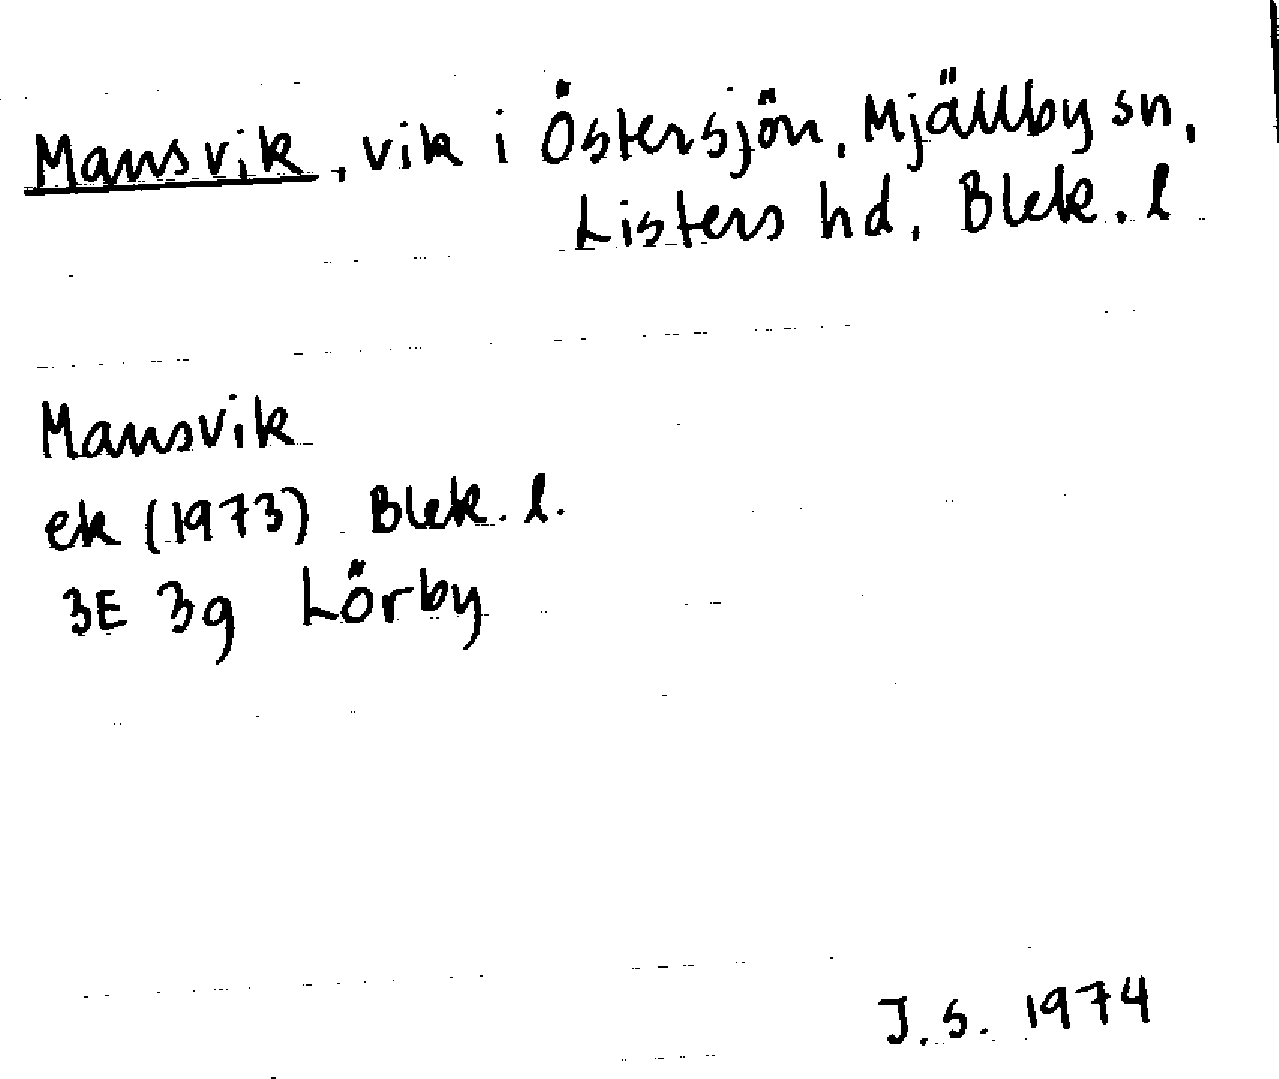 Mansvik, vik i Östersjön, Mjällby sn,
Listers hd, Blek. l
Mansvik
ek (1973) Blek. l.
3E 3g Lörby
J.S. 1974